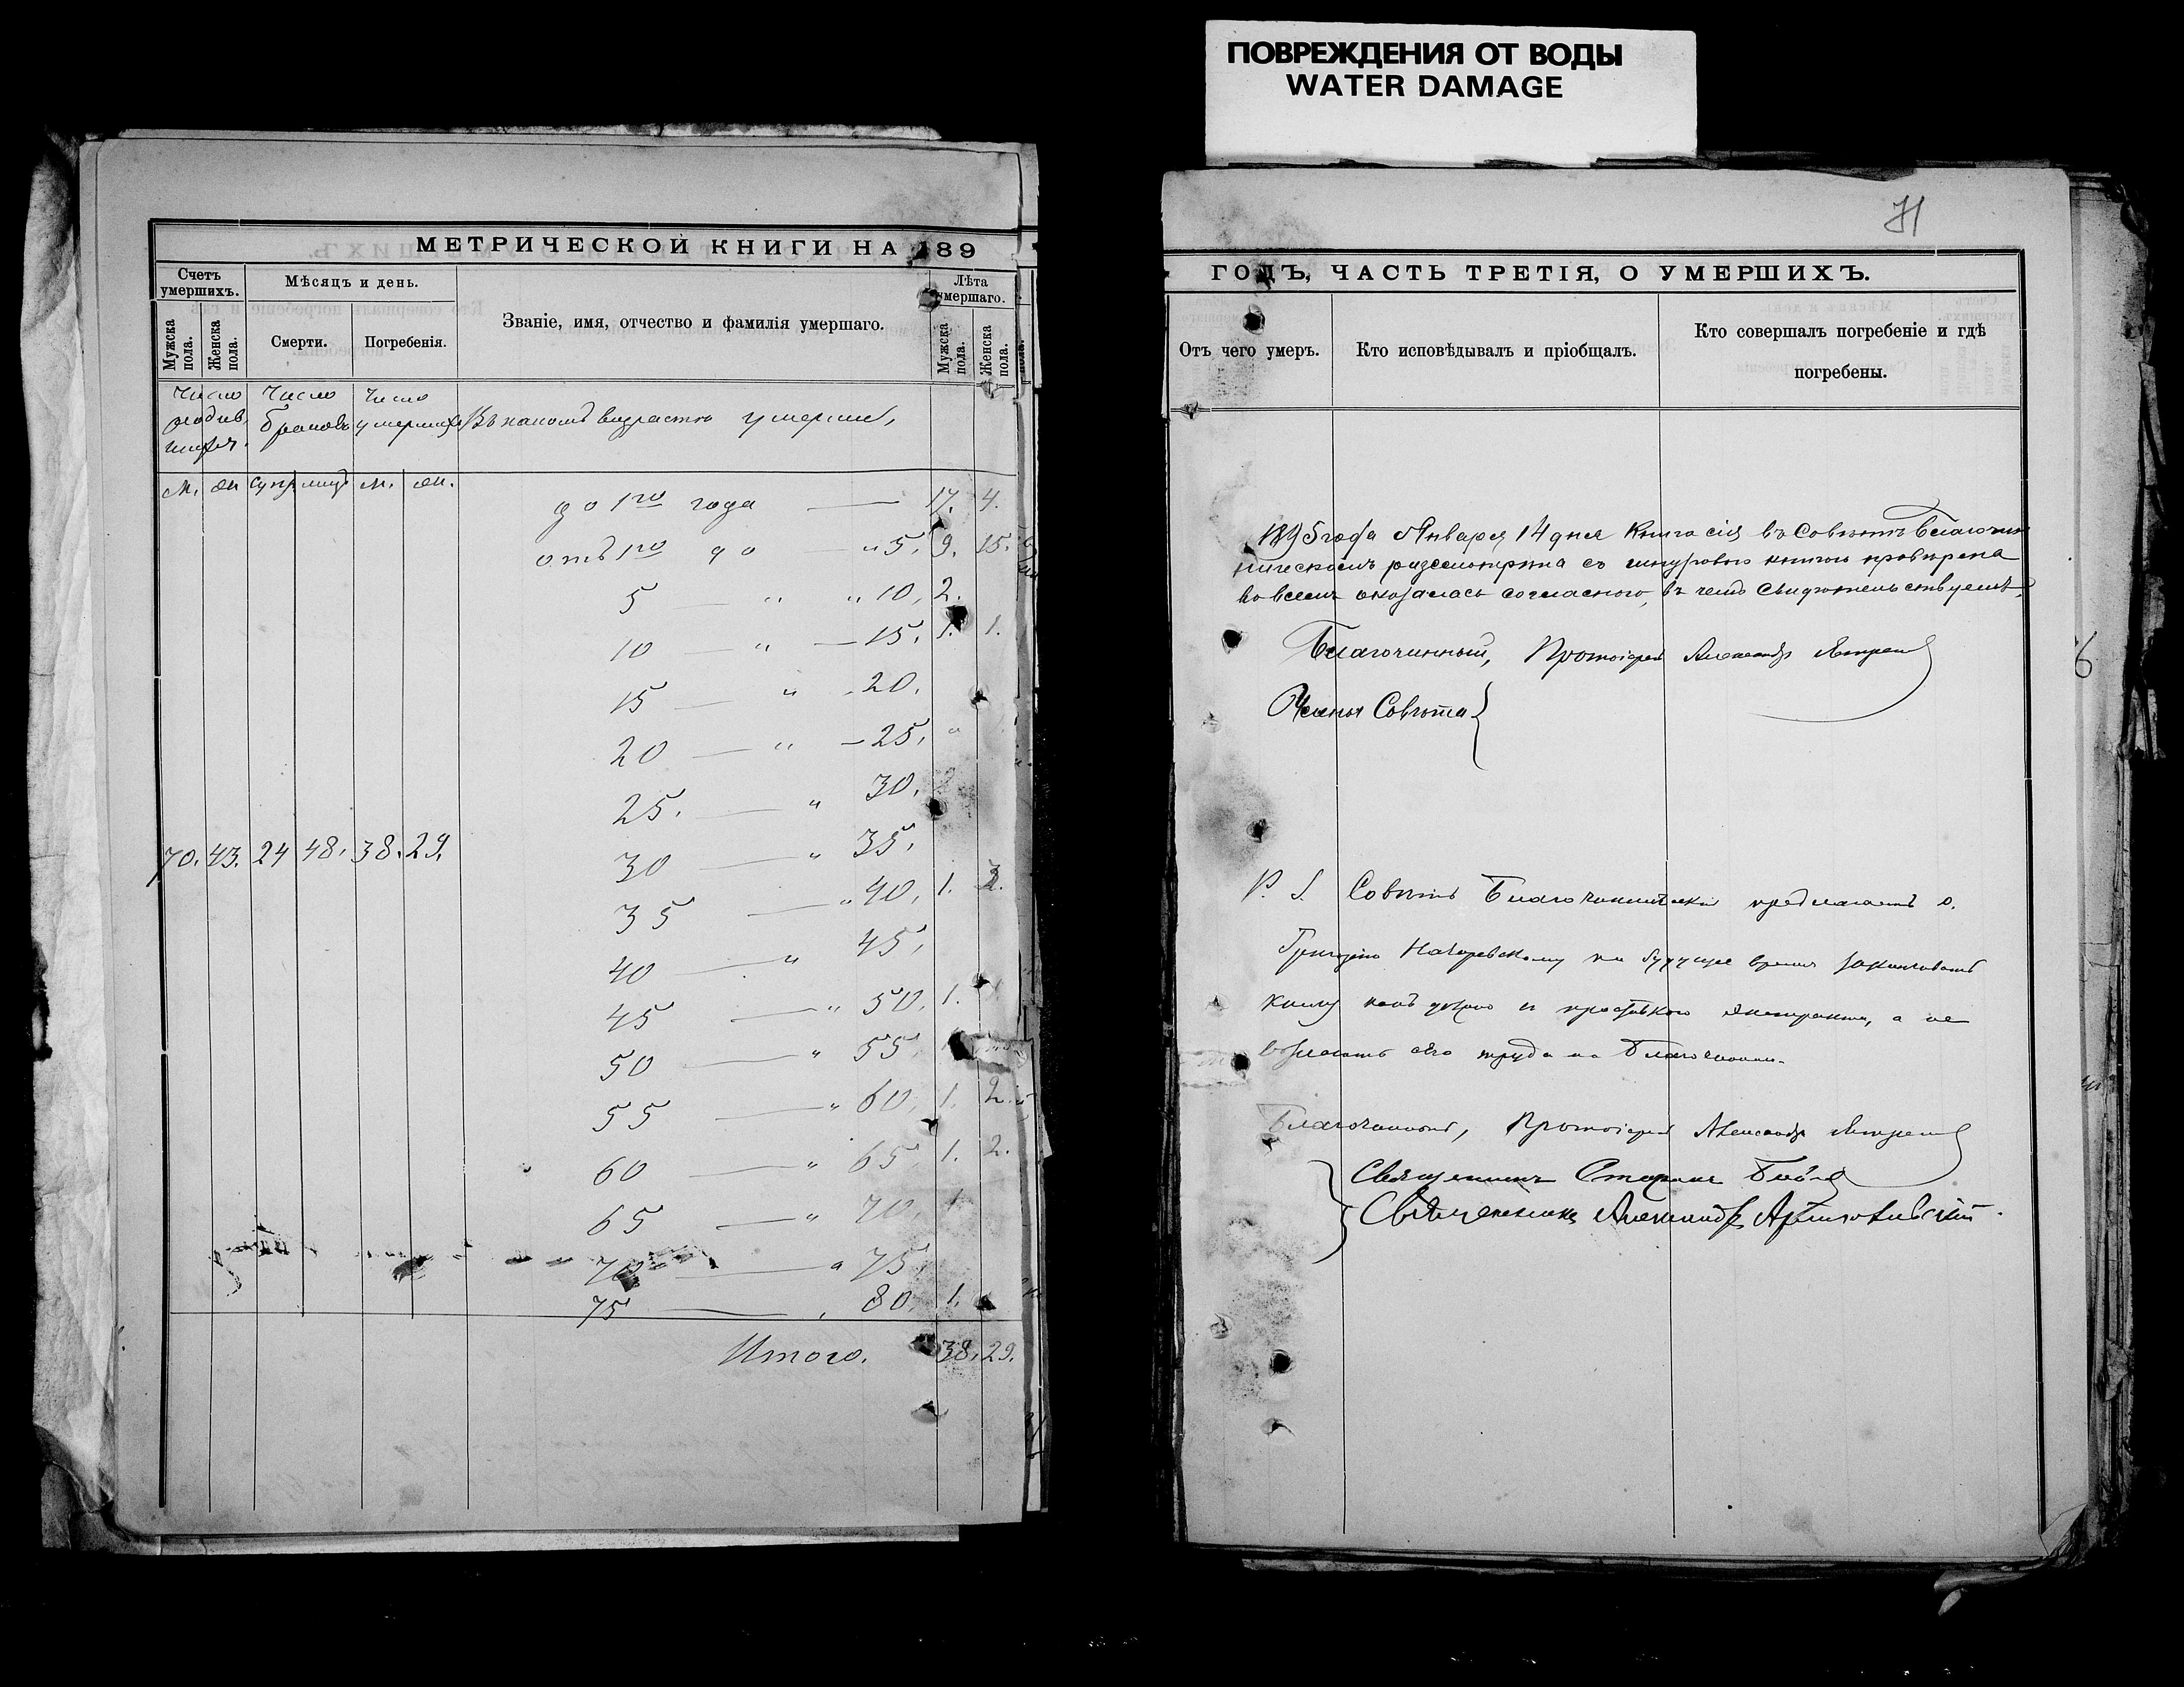 ПОВРЕЖДЕНИЯ ОТ ВОДЫ
WATER DAMAGE
МЕТРИЧЕСКОЙ КНИГИ НА 189
Счетъ умершихъ.
Мѣсяцъ и день.
Званіе, имя, отчество и фамилія умершаго.
Лѣта умершаго.
Мужска пола.
Женска пола.
Смерти.
Погребенія.
Мужска пола.
Женска пола.
Число Число Число
родив Браковъ умершихъ Въ какомъ возрастѣ умерли,
шихся.
М. Ж. М. Ж.
до 1го года — 17. 4.
отъ 1го до " 5. 9. 15.
5 — " " 10, 2.
10 — " — 15. 1. 1.
15 — " 20.
20 — " — 25.
25. — " 30.
30 — " 35.
35 — " 40, 1.
40 — " 45,
45 — " 50. 1.
50 — " 55.
55 — " 60, 1. 2.
60 — " 65 1. 2.
65 — " 70,
70 — " 75,
75 — 80. 1.
70. 43. 24 48. 38. 29.
Итого. 38. 29.
71
ГОДЪ, ЧАСТЬ ТРЕТІЯ, О УМЕРШИХЪ.
Отъ чего умеръ.
Кто исповѣдывалъ и пріобщалъ.
Кто совершалъ погребеніе и гдѣ
погребены.
1895 года Января 14 дня Книга сія въ Совѣтѣ Благочин
ническомъ разсмотрѣна съ шнуровою книгою провѣрена
во всемъ оказалась согласною, въ чемъ свидѣтельствуемъ.
Благочинный, Протоіерей Александръ
Члены Совѣта
P. S. Совѣтъ Благочинническій предлагаетъ о.
Григорію на будущее время
книгу и а не
возлагать его труда на Благочиннаго.
Благочинный, Протоіерей Александръ
Священникъ Стефанъ
Священникъ Александръ